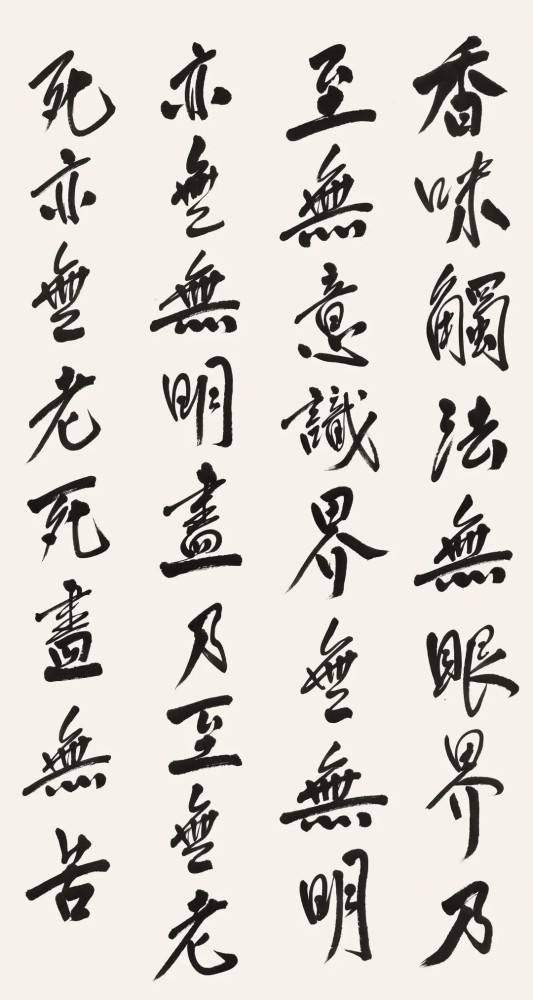 香味觸法無眼界乃
至無意識界無無明
亦無無明盡乃至無老
死亦無老死盡無苦